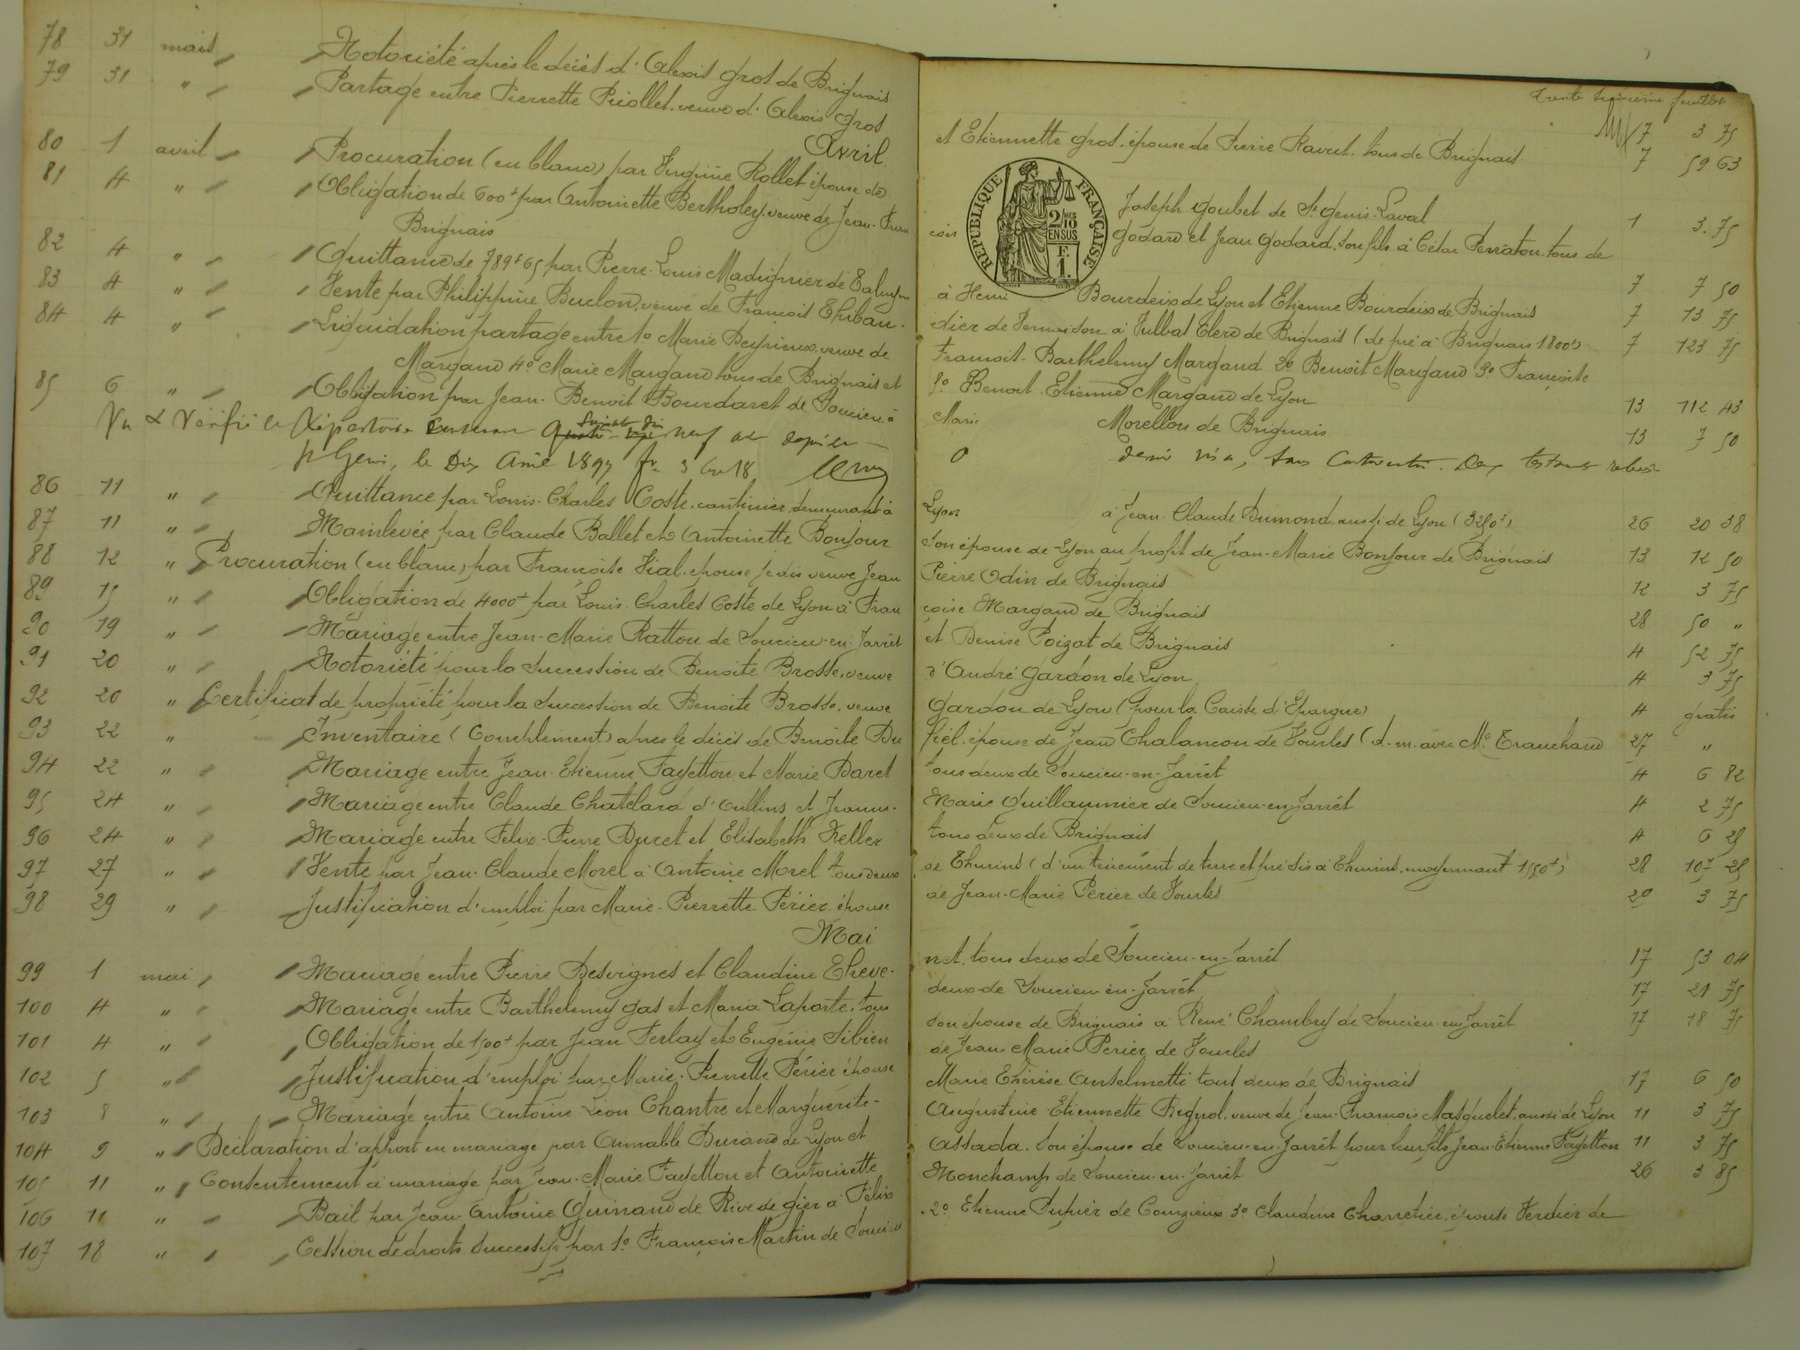 Trente troisième feuillet
78 31 mars Notoriété après le décès d'Alexis Grot de Brignais 7 3 75
79 31 " Partage entre Pierrette Priollet, veuve d'Alexis Grot et Etiennette Grot, épouse de Pierre Ravet, tous de Brignais 7 59 63
Avril
80 1 avril Procuration (en blanc) par Virginie Rollet épouse de Joseph Goubet de St Genis-Laval 1 3.75
81 4 " Obligation de 600f par Antoinette Bertholey, veuve de Jean-François Godard et Jean Godard, son fils à César Perraton, tous de
Brignais 7 7 50
RÉPUBLIQUE FRANÇAISE
2/10 EN SUS
F. 1.
82 4 " Quittance de 789f65 par Pierre-Louis Madignier de à Henri Bourdeix de Lyon et Etienne Bourdeix de Brignais 7 13 75
83 4 " Vente par Philippine Buclon, veuve de François Thibaudier de à Julbat Clerc de Brignais (de pré à Brignais 1800f) 7 123 75
84 4 " Liquidation partage entre 1º Marie Peyrieux, veuve de François-Barthelemy Margand 2º Benoit Margand 3º Françoise
Margand 4º Marie Margand tous de Brignais et 5º Benoit-Etienne Margand de Lyon 13 112 43
85 6 " Obligation par Jean-Benoit Bourdaret de Soucieu à Marie Morellon de Brignais 13 7 50
Vu & Vérifié le Répertoire neuf
St Genis, le Dix Avril 1897
86 11 " Quittance par Louis-Charles Coste, cantinier, demeurant à Lyon à Jean-Claude Dumond, aussi de Lyon (3250f) 26 20 38
87 11 " Mainlevée par Claude Ballet et Antoinette Bonjour son épouse de Lyon au profit de Jean-Marie Bonjour de Brignais 13 12 50
88 12 " Procuration (en blanc) par Françoise Vial, épouse jadis veuve Jean Pierre Odin de Brignais 12 3 75
89 15 " Obligation de 4000f par Louis-Charles Coste de Lyon à Françoise Margand de Brignais 28 50 "
90 19 " Mariage entre Jean-Marie Ratton de Soucieu-en-Jarrêt et Denise Poizat de Brignais 4 52 75
91 20 " Notoriété pour la succession de Benoite Brosse, veuve d'André Gardon de Lyon 4 3 75
92 20 " Certificat de propriété pour la succession de Benoite Brosse, veuve Gardon de Lyon (pour la Caisse d'Epargne) 4 gratis
93 22 " Inventaire (Complément) après le décès de Benoite Dufiel, épouse de Jean Chalancon de Vourles (d. m. avec Me Tranchand 27 "
94 22 " Mariage entre Jean-Etienne Fayetton et Marie Baret tous deux de Soucieu-en-Jarrêt 4 6 82
95 24 " Mariage entre Claude Chatelard d'Oullins et Jeanne-Marie Guillaumier de Soucieu-en-Jarrêt 4 2 75
96 24 " Mariage entre Félix-Pierre Duret et Elisabeth Keller tous deux de Brignais 4 6 25
97 27 " Vente par Jean-Claude Morel à Antoine Morel tous deux de Thurins (d'un tènement de terre et pré sis à Thurins, moyennant 1550f) 28 107 25
98 29 " Justification d'emploi par Marie-Pierrette Périer, épouse de Jean-Marie Périer de Vourles 29 3 75
Mai
99 1 mai Mariage entre Pierre Desvignes et Claudine Thevenet, tous deux de Soucieu-en-Jarrêt 17 53 04
100 4 " Mariage entre Barthelemy Gas et Maria Laporte, tous deux de Soucieu-en-Jarrêt 17 21 75
101 4 " Obligation de 1500f par Jean Ferlay et Eugénie Silien son épouse de Brignais à René Chambry de Soucieu-en-Jarrêt 17 18 75
102 5 " Justification d'emploi par Marie-Pierrette Périer épouse de Jean-Marie Périer de Vourles
103 8 " Mariage entre Antoine-Léon Chantre et Marguerite-Marie Thérèse Anselmetti tous deux de Brignais 17 6 50
104 9 " Déclaration d'apport en mariage par Annable Durand de Lyon et Augustine-Etiennette Rignol, veuve de Jean-François Masquelet, aussi de Lyon 11 3 75
105 11 " Consentement à mariage par Jean-Marie Fayetton et Antoinette Assada, son épouse de Soucieu-en-Jarrêt pour leur fils Jean-Etienne Fayetton 11 3 75
106 11 " Bail par Jean-Antoine Guinand de Rive de Gier à Félix Monchamp de Soucieu-en-Jarrêt 26 3 85
107 18 " Cession de droits successifs par 1º François Martin de Soucieu 2º Etienne Pupier de Conzieux 3º Claudine Charretier, épouse Verdier de